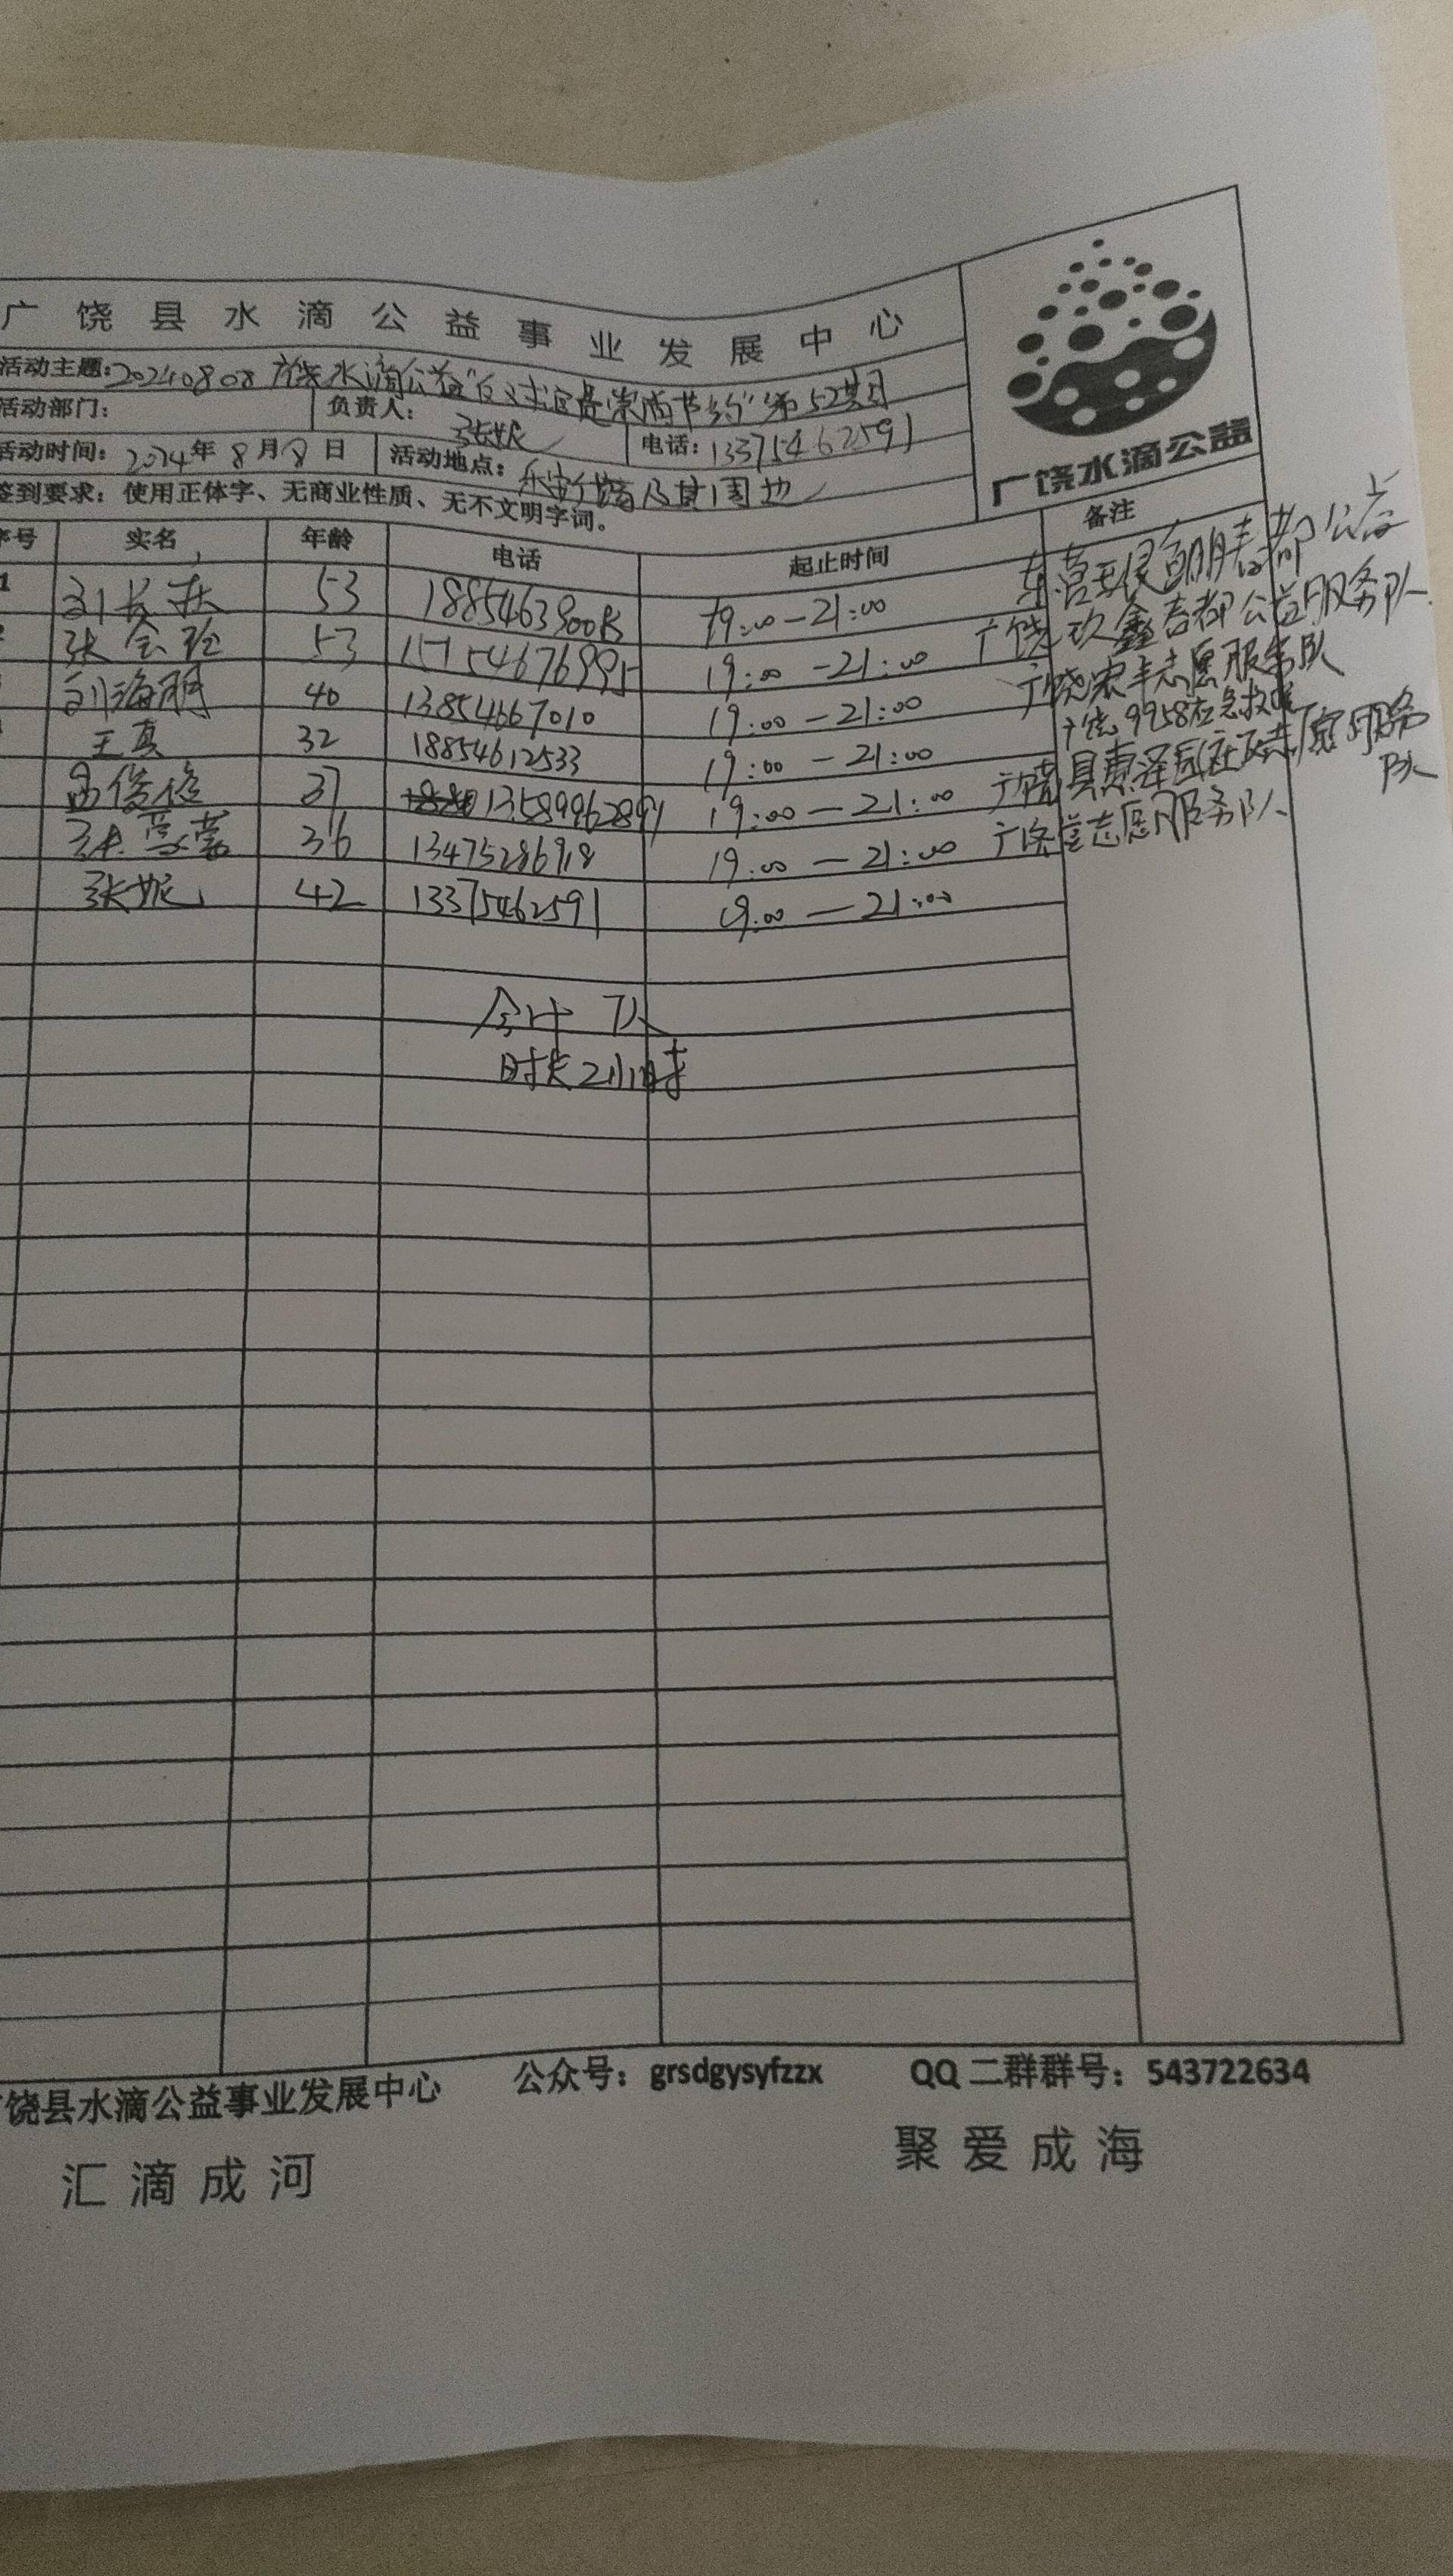 广饶县水滴公益事业发展中心
活动主题:20240808 广饶水滴公益" 节约"第52期
活动部门: 负责人: 张妮 电话: 13375462591
活动时间: 2024年8月8日 活动地点: 乐安街道及其周边
签到要求: 使用正体字、无商业性质、无不文明字词。
广饶水滴公益
序号 实名 年龄 电话 起止时间 备注
1 刘长 53 19:00-21:00 东营 公益
张会 53 15154676995 19:00-21:00 广饶 公益服务队
刘海明 40 13854667010 19:00-21:00 广饶 志愿服务队
王真 32 18854612533 19:00-21:00 广饶9958应急救
俊俊 37 13589962891 19:00-21:00 广饶县惠泽园社区志愿服务队
张蒙蒙 36 13475286918 19:00-21:00 志愿服务队
张妮 42 13375462591 19:00-21:00
合计 7人
时长2小时
饶县水滴公益事业发展中心 公众号: grsdgysyfzzx QQ二群群号: 543722634
汇滴成河 聚爱成海